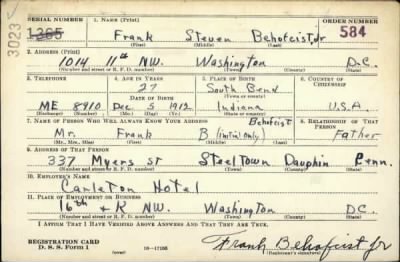 SERIAL NUMBER 1. NAME (Print) ORDER NUMBER
1365 Frank Steven Behofcist Jr 584
(First) (Middle) (Last)
3023
2. ADDRESS (Print)
1014 11th NW. Washington D.C.
(Number and street or R. F. D. number) (Town) (County) (State)
3. TELEPHONE 4. AGE IN YEARS 5. PLACE OF BIRTH 6. COUNTRY OF CITIZENSHIP
27 South Bend
DATE OF BIRTH (Town or county)
ME 8910 Dec 5 1912 Indiana U.S.A.
(Exchange) (Number) (Mo.) (Day) (Yr.) (State or country)
7. NAME OF PERSON WHO WILL ALWAYS KNOW YOUR ADDRESS Behofcist 8. RELATIONSHIP OF THAT PERSON
Mr. Frank B (initial only) Father
(Mr., Mrs., Miss) (First) (Middle) (Last)
9. ADDRESS OF THAT PERSON
337 Myers st Steeltown Dauphin Penn.
(Number and street or R. F. D. number) (Town) (County) (State)
10. EMPLOYER'S NAME
Carleton Hotel
11. PLACE OF EMPLOYMENT OR BUSINESS
16th + K NW. Washington DC.
(Number and street or R. F. D. number) (Town) (County) (State)
I AFFIRM THAT I HAVE VERIFIED ABOVE ANSWERS AND THAT THEY ARE TRUE.
REGISTRATION CARD
D. S. S. Form 1 (over) 16-17105 Frank Behofcist Jr
(Registrant's signature)